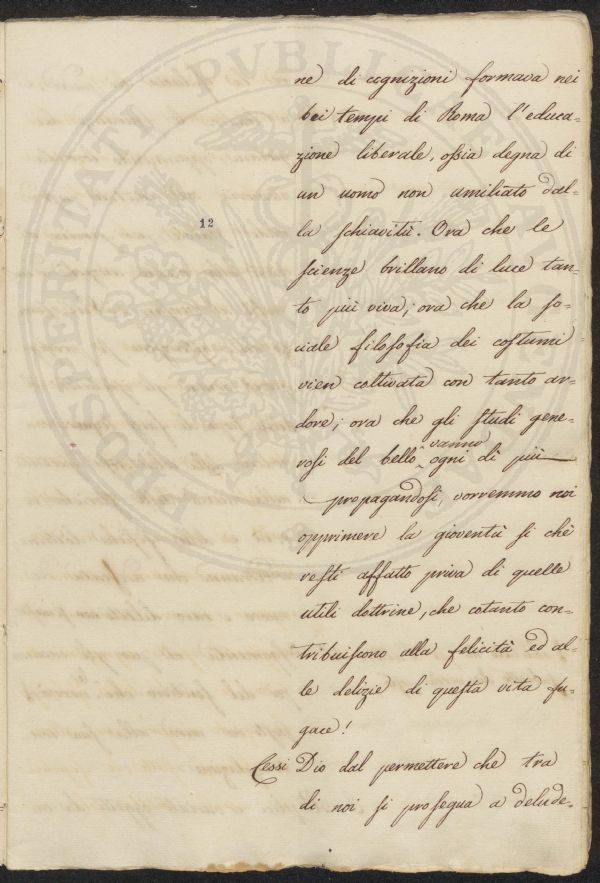 ne di cognizioni formava nei
bei tempi di Roma l'educa-
zione liberale, ossia degna di
un uomo non umiliato dal-
12
la schiavitù. Ora che le
scienze brillano di luce tan-
to più viva; ora che la so-
ciale filosofia dei costumi
vien coltivata con tanto ar-
dore; ora che gli studi gene-
vanno
rosi del bello ogni dì più
propagandosi, vorremmo noi
opprimere la gioventù sì chè
resti affatto priva di quelle
utili dottrine, che cotanto con-
tribuiscono alla felicità ed al-
le delizie di questa vita fu-
gace!
Cessi Dio dal permettere che tra
di noi si prosegua a delude-
PROSPERITATI PVBLICAE AVGENDAE